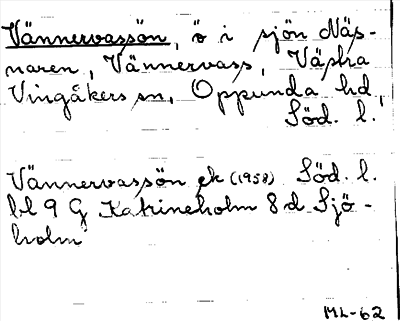 Vännervassön, ö i sjön Näs-
naren, Vännervass, Västra
Vingåkers sn, Oppunda hd,
Söd. l.
Vännervassön ek (1958) Söd. l.
bl 9 G Katrineholm 8 d Sjö-
holm
ML-62